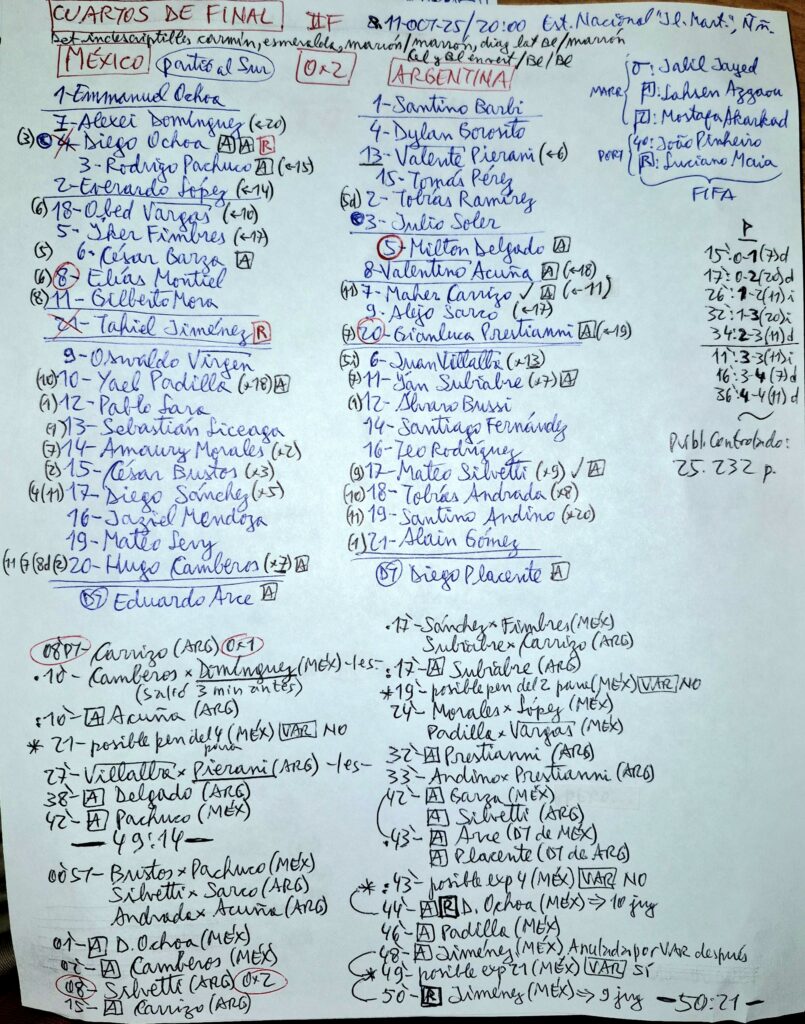 CUARTOS DE FINAL IIF 11-OCT-25/20:00 Est. Nacional "J.l. Mart.", Ññ.
Set indescriptibles carmín, esmeralda, marrón/marrón, diag lat Be/marrón
Cel y Bl envert/Be/Be
MÉXICO (partió al Sur) 0x2 ARGENTINA
1-Emmanuel Ochoa
7-Alexei Domínguez (←20)
(3) 4-Diego Ochoa A A R
3-Rodrigo Pachuco A (←15)
2-Everardo López (←14)
(6) 18-Obed Vargas (←10)
5-Iker Fimbres (←17)
(5) 6-César Garza A
(6) 8-Elías Montiel
(8) 11-Gilberto Mora
21-Tahiel Jiménez R
9-Oswaldo Virgen
(10) 10-Yael Padilla (x18) A
(1) 12-Pablo Lara
(9) 13-Sebastián Liceaga
(7) 14-Amaury Morales (x2)
(2) 15-César Bustos (x3)
(4(11) 17-Diego Sánchez (x5)
16-Jaziel Mendoza
19-Mateo Levy
(11(7(8d(2) 20-Hugo Camberos (x7) A
DT Eduardo Arce A
1-Santino Barbi
4-Dylan Gorosito
13-Valente Pierani (←6)
15-Tomás Pérez
(5d) 2-Tobías Ramírez
3-Julio Soler
5-Milton Delgado A
8-Valentino Acuña A (←18)
(11) 7-Maher Carrizo ✓ A (←11)
9-Alejo Sarco (←17)
(7) 20-Gianluca Prestianni A (←19)
(5i) 6-Juan Villalba (x13)
(7) 11-Ián Subiabre (x7) A
(1) 12-Álvaro Bussi
14-Santiago Fernández
16-Teo Rodríguez
(9) 17-Mateo Silvetti (x9) ✓ A
(10) 18-Tobías Andrada (x8)
(11) 19-Santino Andino (x20)
(1) 21-Alain Gómez
DT Diego Placente A
MARR
Jalil Jayed
Lahsen Azgaou
Mostafa Akarkad
PORT
4o: João Pinheiro
R: Luciano Maia
FIFA
P
15: 0-1 (7) d
17: 0-2 (20) d
26: 1-2 (11) i
32: 1-3 (20) i
34: 2-3 (11) d
11: 3-3 (11) i
16: 3-4 (7) d
36: 4-4 (11) d
Públ. Controlado:
25.232 p.
08PT- Carrizo (ARG) 0x1
10- Camberos x Domínguez (MÉX) -les-
(salió 3 min antes)
10- A Acuña (ARG)
* 21- posible pen del 4 para (MÉX) VAR NO
27- Villalba x Pierani (ARG) -les-
38- A Delgado (ARG)
42- A Pachuco (MÉX)
— 49:14 —
00ST- Bustos x Pachuco (MÉX)
Silvetti x Sarco (ARG)
Andrada x Acuña (ARG)
01- A D. Ochoa (MÉX)
02- A Camberos (MÉX)
08- Silvetti (ARG) 0x2
15- A Carrizo (ARG)
17- Sánchez x Fimbres (MÉX)
Subiabre x Carrizo (ARG)
17- A Subiabre (ARG)
* 19- posible pen del 2 para (MÉX) VAR NO
24- Morales x López (MÉX)
Padilla x Vargas (MÉX)
32- A Prestianni (ARG)
33- Andino x Prestianni (ARG)
42- A Garza (MÉX)
A Silvetti (ARG)
43- A Arce (DT de MÉX)
A Placente (DT de ARG)
* 43- posible exp 4 (MÉX) VAR NO
44- A R D. Ochoa (MÉX) ⇒ 10 jug
46- A Padilla (MÉX)
48- A Jiménez (MÉX) Anulada por VAR después
* 49- posible exp 21 (MÉX) VAR SÍ
50- R Jiménez (MÉX) ⇒ 9 jug — 50:21 —